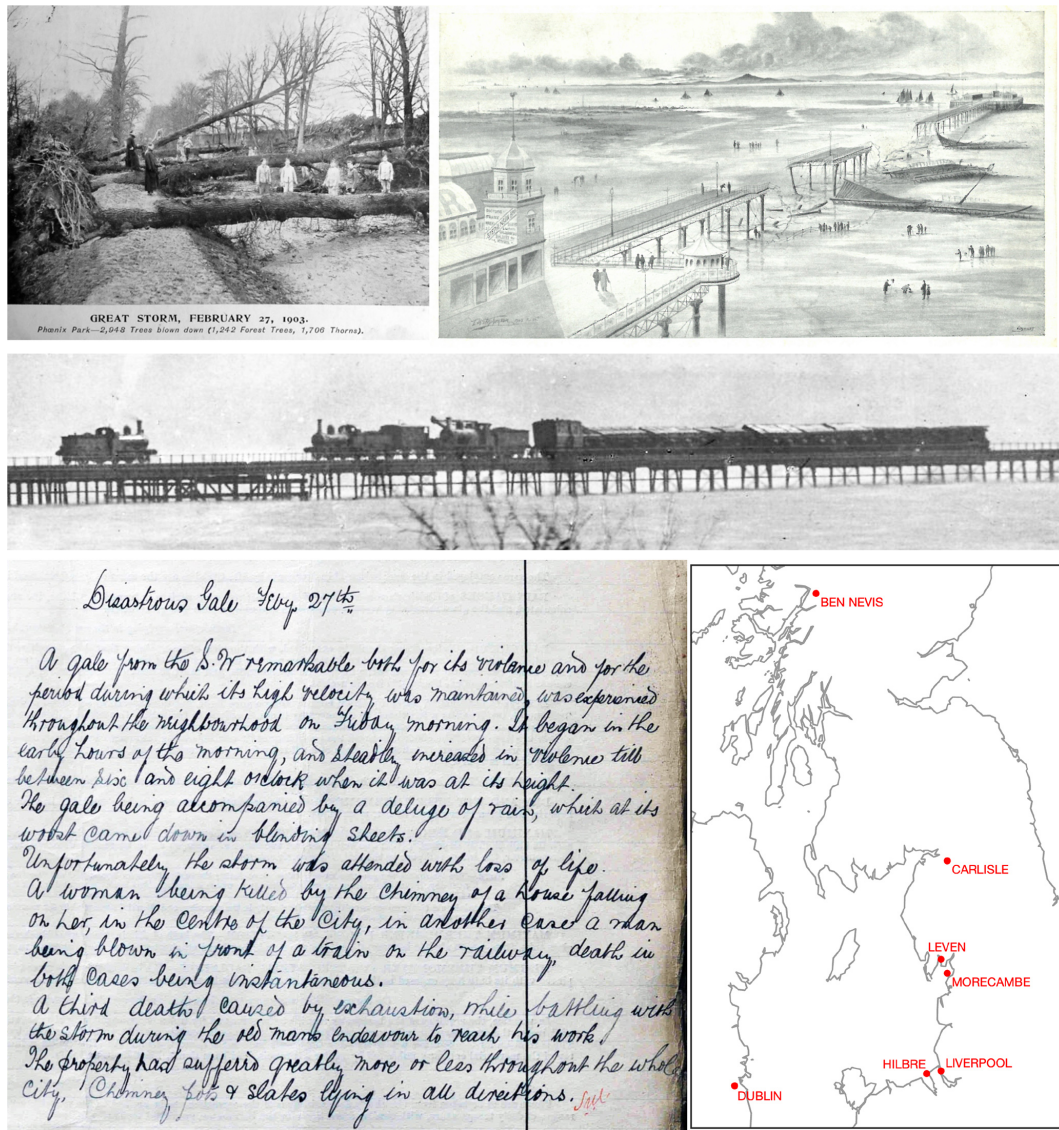 GREAT STORM, FEBRUARY 27, 1903.
Phœnix Park—2,948 Trees blown down (1,242 Forest Trees, 1,706 Thorns).
Disastrous Gale Feby. 27th
A gale from the S.W remarkable both for its violence and for the
period during which its high velocity was maintained, was experienced
throughout the neighbourhood on Friday morning. It began in the
early hours of the morning, and steadily increased in violence till
between six and eight oclock when it was at its height.
The gale being accompanied by a deluge of rain, which at its
worst came down in blinding sheets.
Unfortunately the storm was attended with loss of life.
A woman being killed by the chimney of a house falling
on her, in the centre of the City, in another case a man
being blown in front of a train on the railway, death in
both cases being instantaneous.
A third death caused by exhaustion, while battling with
the storm during the old mans endeavour to reach his work.
The property has sufferd greatly more or less throughout the whole
City. Chimney pots & slates lying in all directions.
BEN NEVIS
CARLISLE
LEVEN
MORECAMBE
HILBRE
LIVERPOOL
DUBLIN